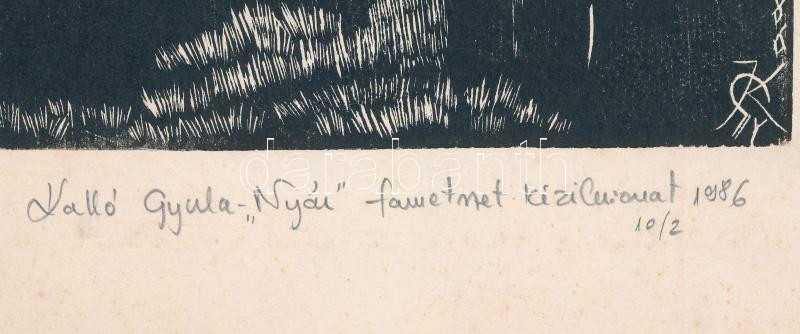 darabanth
Kalló Gyula - „Nyár” fametszet kézilenyomat 1986
10/2